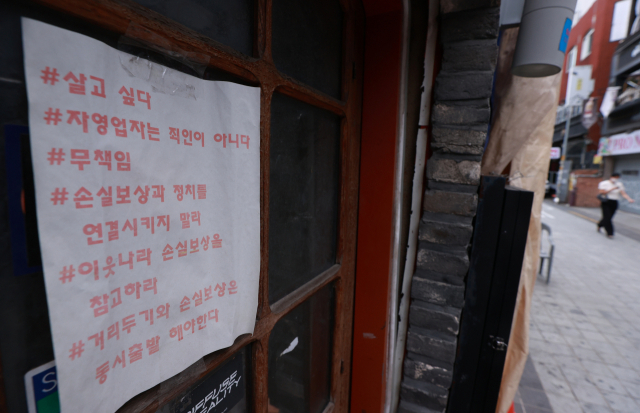 #살고 싶다
#자영업자는 죄인이 아니다
#무책임
#손실보상과 정치를
연결시키지 말라
#이웃나라 손실보상을
참고하라
#거리두기와 손실보상은
동시출발 해야한다